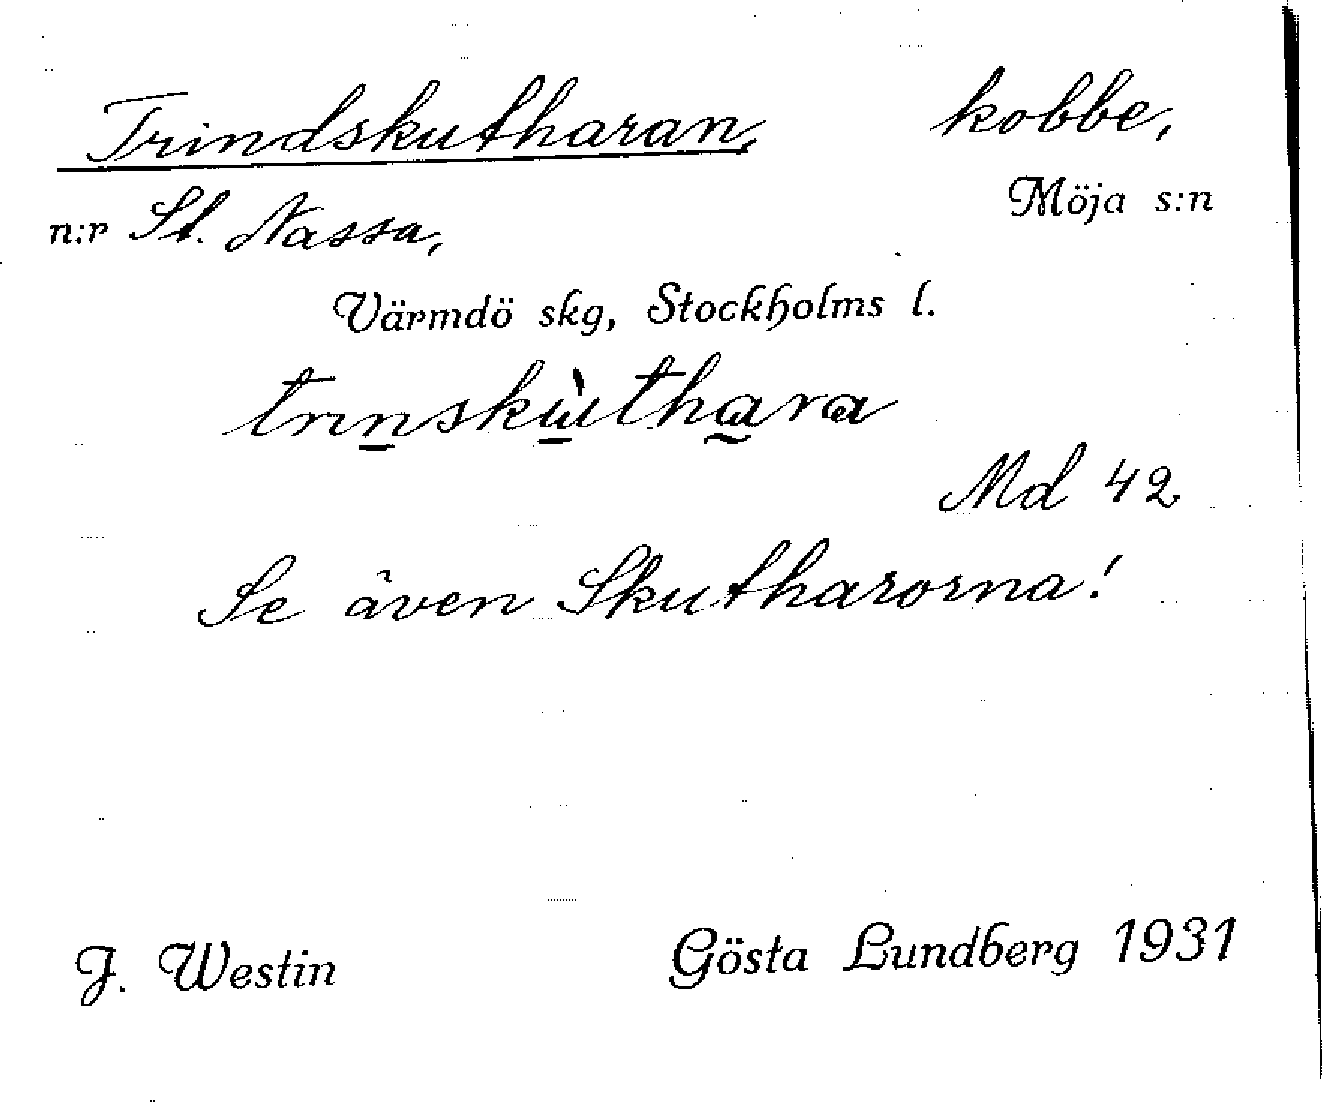 Trindskutharan, kobbe,
n:r St. Nassa, Möja s:n
Värmdö skg, Stockholms l.
trinskùthara
Md 42
Se även Skutharorna!
J. Westin Gösta Lundberg 1931